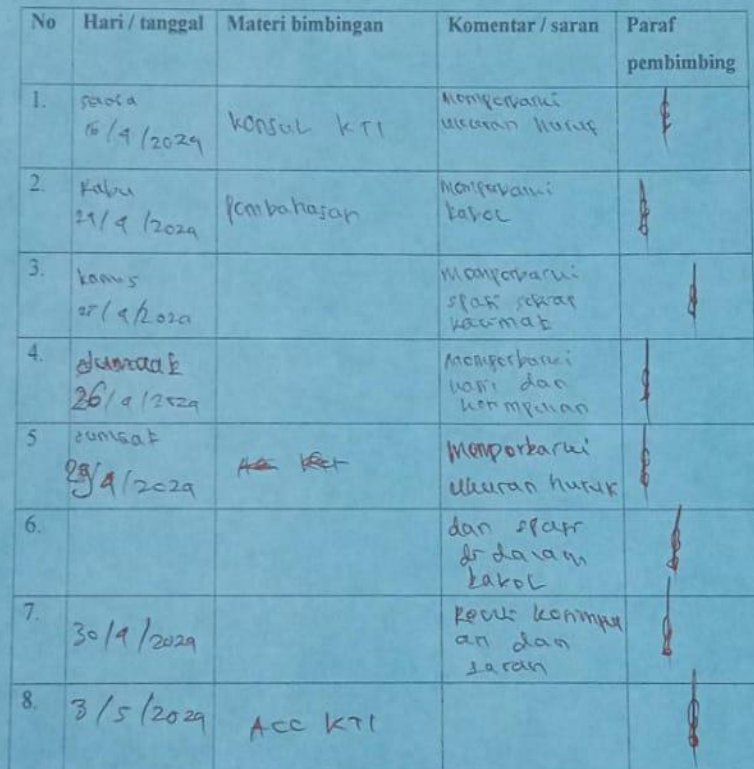 No Hari / tanggal Materi bimbingan Komentar / saran Paraf
pembimbing
1. Selasa
16/4/2024
Konsul KTI
Memperbarui
ukuran huruf
2. Rabu
24/4/2024
Pembahasan
Memperbarui
tabel
3. Kamis
25/4/2024
Memperbarui
spasi setiap
kalimat
4. Jumaat
26/4/2024
Memperbarui
hasil dan
kesimpulan
5 Jumaat
29/4/2024
Memperbarui
ukuran huruf
6.
dan spasi
di dalam
tabel
7.
30/4/2024
an dan
saran
8. 3/5/2024
ACC KTI